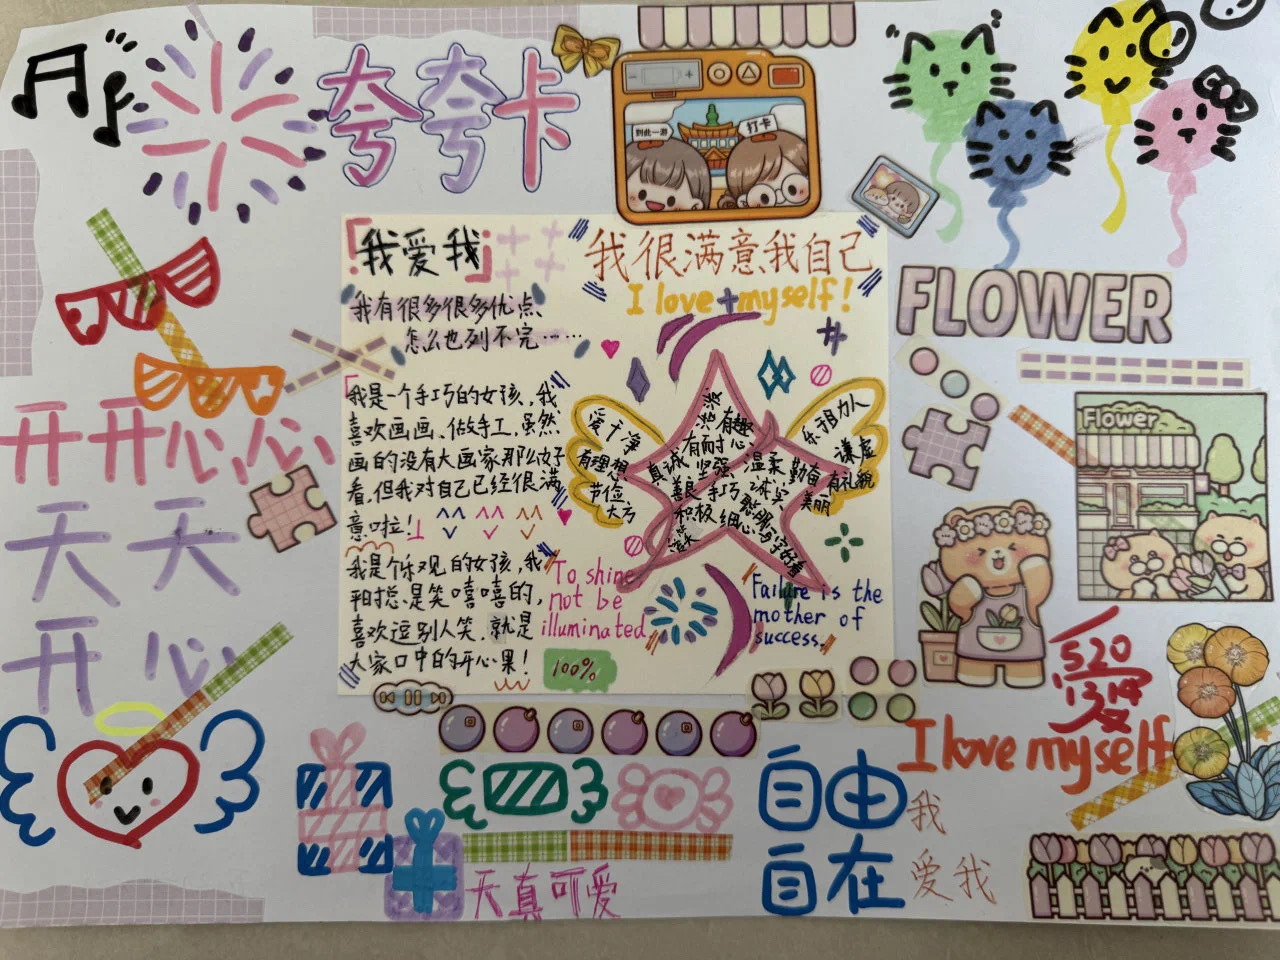 夸夸卡
到此一游
打卡
「我爱我」
我有很多很多优点
怎么也列不完……
我是一个手巧的女孩,我
喜欢画画、做手工,虽然
画的没有大画家那么好
看,但我对自己已经很满
意啦!
我是个乐观的女孩,我
平时总是笑嘻嘻的,
喜欢逗别人笑,就是
大家口中的开心果!
我很满意我自己
I love myself!
爱干净
有理想
节俭
大方
有趣
有耐心
真诚
坚强
善良
手巧
积极
细心
温柔
诚实
聪明
写字好看
勤奋
美丽
乐于助人
谦虚
有礼貌
To shine
not be
illuminated
100%
Failure is the
mother of
success.
FLOWER
Flower
开开心心
天天
开心
520
1314
I love myself
自由
自在
我
爱我
天真可爱